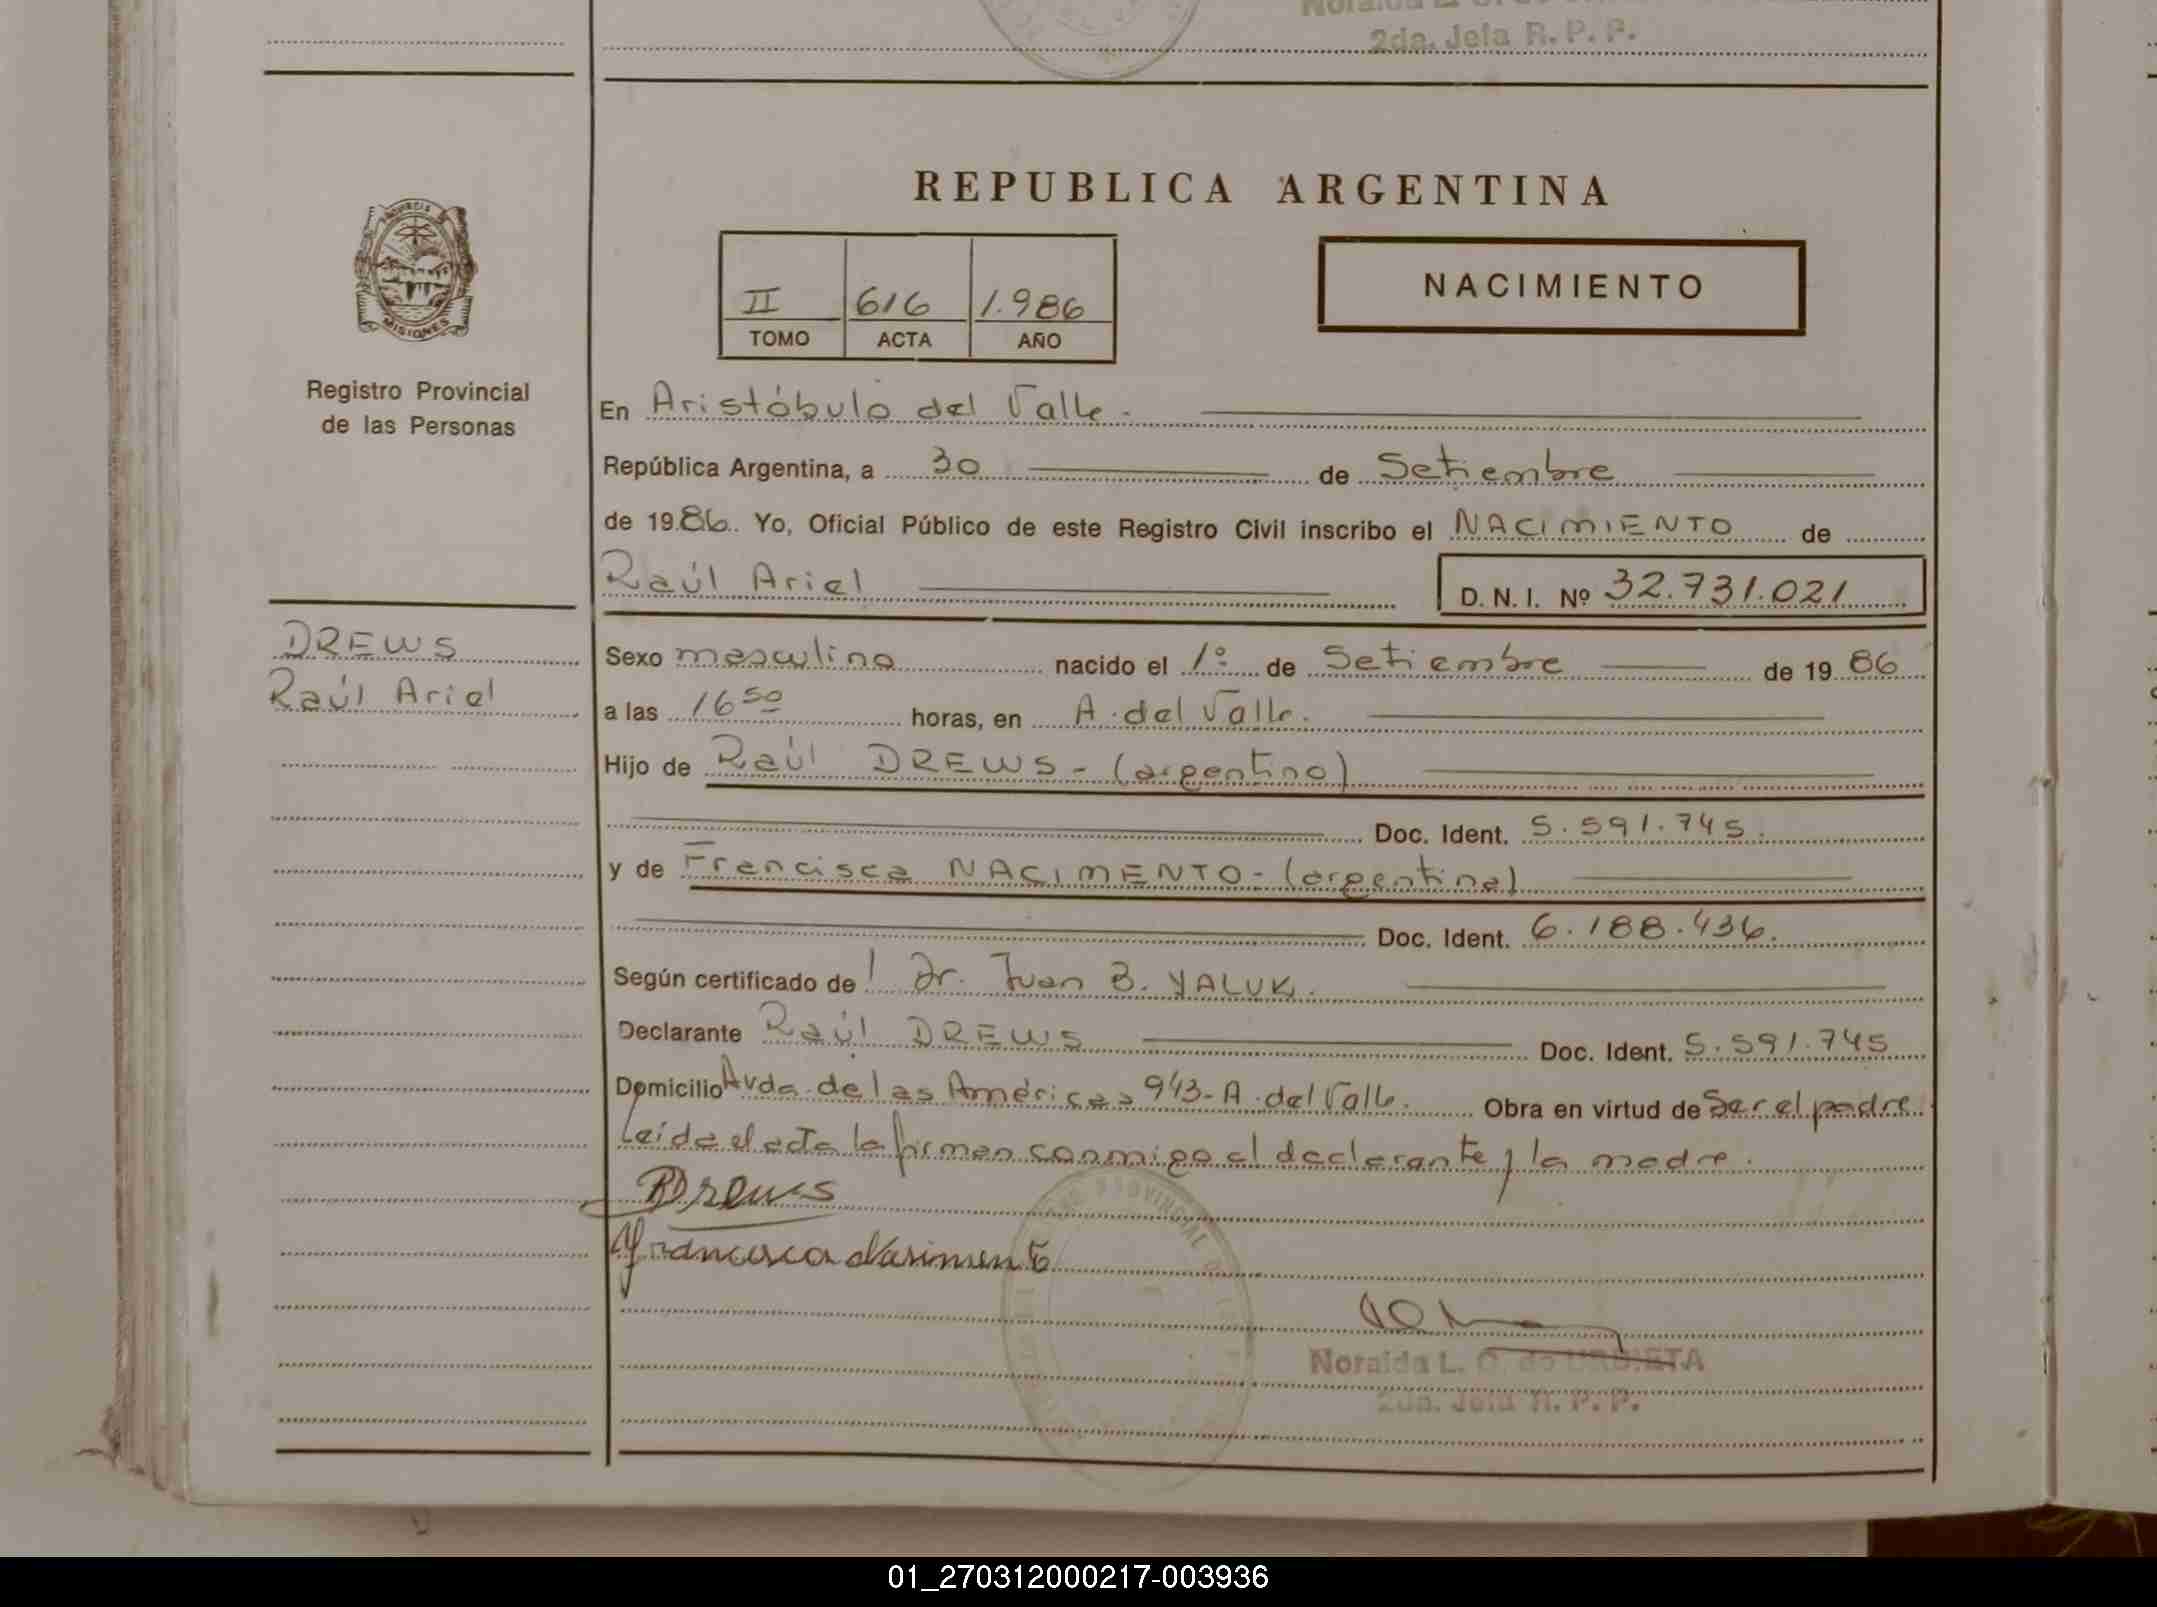 2da. Jefa R. P. P.
REPUBLICA ARGENTINA
PROVINCIA
MISIONES
Registro Provincial
de las Personas
II 616 1.986
TOMO ACTA AÑO
NACIMIENTO
En Aristóbulo del Valle.
República Argentina, a 30 de Setiembre
de 1986. Yo, Oficial Público de este Registro Civil inscribo el NACIMIENTO de
Raúl Ariel D. N. I. Nº 32.731.021
DREWS
Raúl Ariel
Sexo masculino nacido el 1º de Setiembre de 1986
a las 16 50 horas, en A. del Valle.
Hijo de Raúl DREWS - (argentino)
Doc. Ident. 5.591.745.
y de Francisca NACIMENTO - (argentina)
Doc. Ident. 6.188.436.
Según certificado de Dr. Juan B. YALUK.
Declarante Raúl DREWS Doc. Ident. 5.591.745
Domicilio Avda. de las Américas 943 - A. del Valle. Obra en virtud de Ser el padre
Leída el acta la firman conmigo el declarante y la madre.
RDrews
Francisca Nasimento
Noraida L. O. de URBIETA
2da. Jefa R. P. P.
01_270312000217-003936